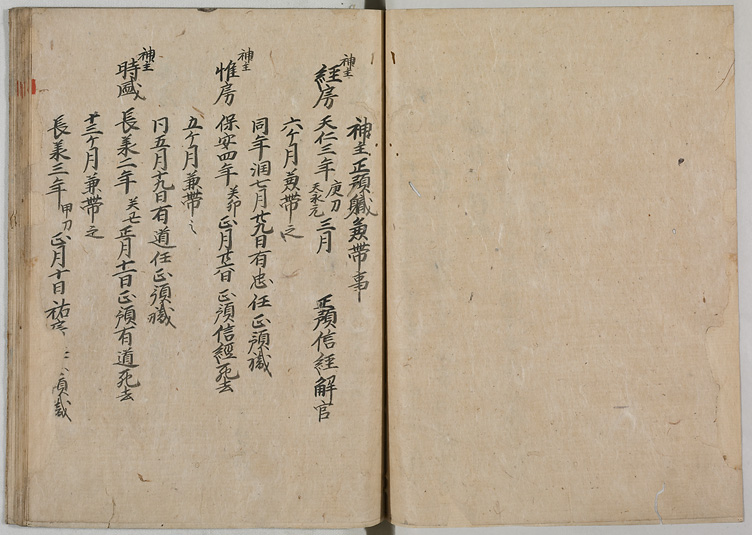 神主正預職兼帯事
神主
経房 天仁三年庚刀天永元三月 正預信経解官
六ケ月兼帯之
同年潤七月廿九日有忠任正預職
神主
惟房 保安四年癸卯正月廿六日正預信経死去
五ケ月兼帯之
同五月十九日有道任正預職
神主
時盛 長承二年癸丑正月十二日正預有道死去
十三ケ月兼帯之
長承三年甲刀正月十日祐房 預職